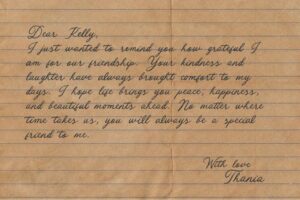 Dear Kelly,
I just wanted to remind you how grateful I
am for our friendship. Your kindness and
laughter have always brought comfort to my
days. I hope life brings you peace, happiness,
and beautiful moments ahead. No matter where
time takes us, you will always be a special
friend to me.
With love
Thania